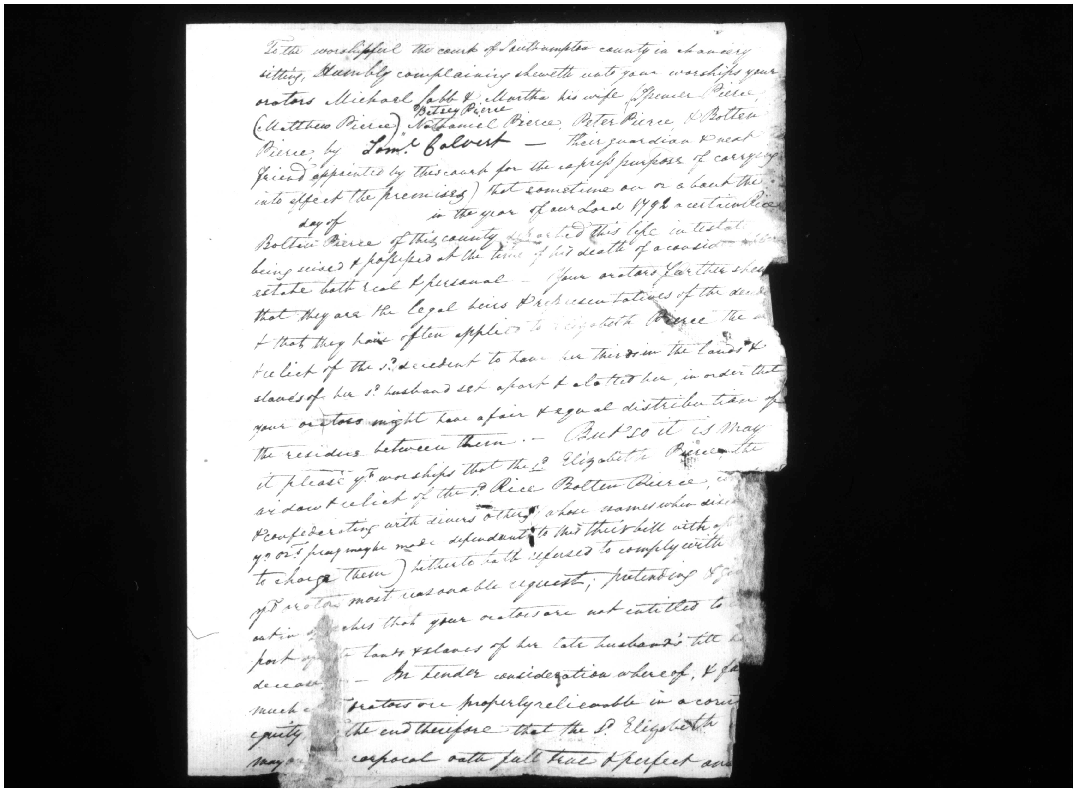 To the worshipful the court of Southampton county in chancery
sitting, Humbly complaining sheweth unto your worships your
orators Michael & Martha his wife (Spencer Pierce,
Betsey Pierce
(Matthew Pierce) Nathaniel Pierce Peter Pierce & Bolten
Pierce by Saml. Calvert — their guardian & next
friend appointed by this court for the express purpose of carrying
into effect the premises) that sometime on or about the
day of in the year of our Lord 1792 a certain Rice
Bolten Pierce of this county departed this life intestate
being seised & possessed at the time of his death of a
estate both real & personal — Your orators further shew
that they are the legal heirs & representatives of the
& that they have often applied to Elizabeth Pierce the
relict of the sd. decedent to have her thirds in the lands &
slaves of her sd. husband set apart & alotted her, in order that
your orators might have a fair & equal distribution of
the residue between them. — But so it is may
it please yr. worships that the sd. Elizabeth Pierce the
widow & relict of the sd. Rice Bolten Pierce,
& confederating with divers others whose names when
yr. ors. pray may be made defendants to this their bill with
to charge them) hitherto hath refused to comply with
yr. orators most reasonable request; pretending &
out in that your orators are not intitled to
part of lands & slaves of her late husband's till
— In tender consideration whereof, &
much orators are properly relievable in a
equity the end therefore that the sd. Elizabeth
may corporal oath full true & perfect